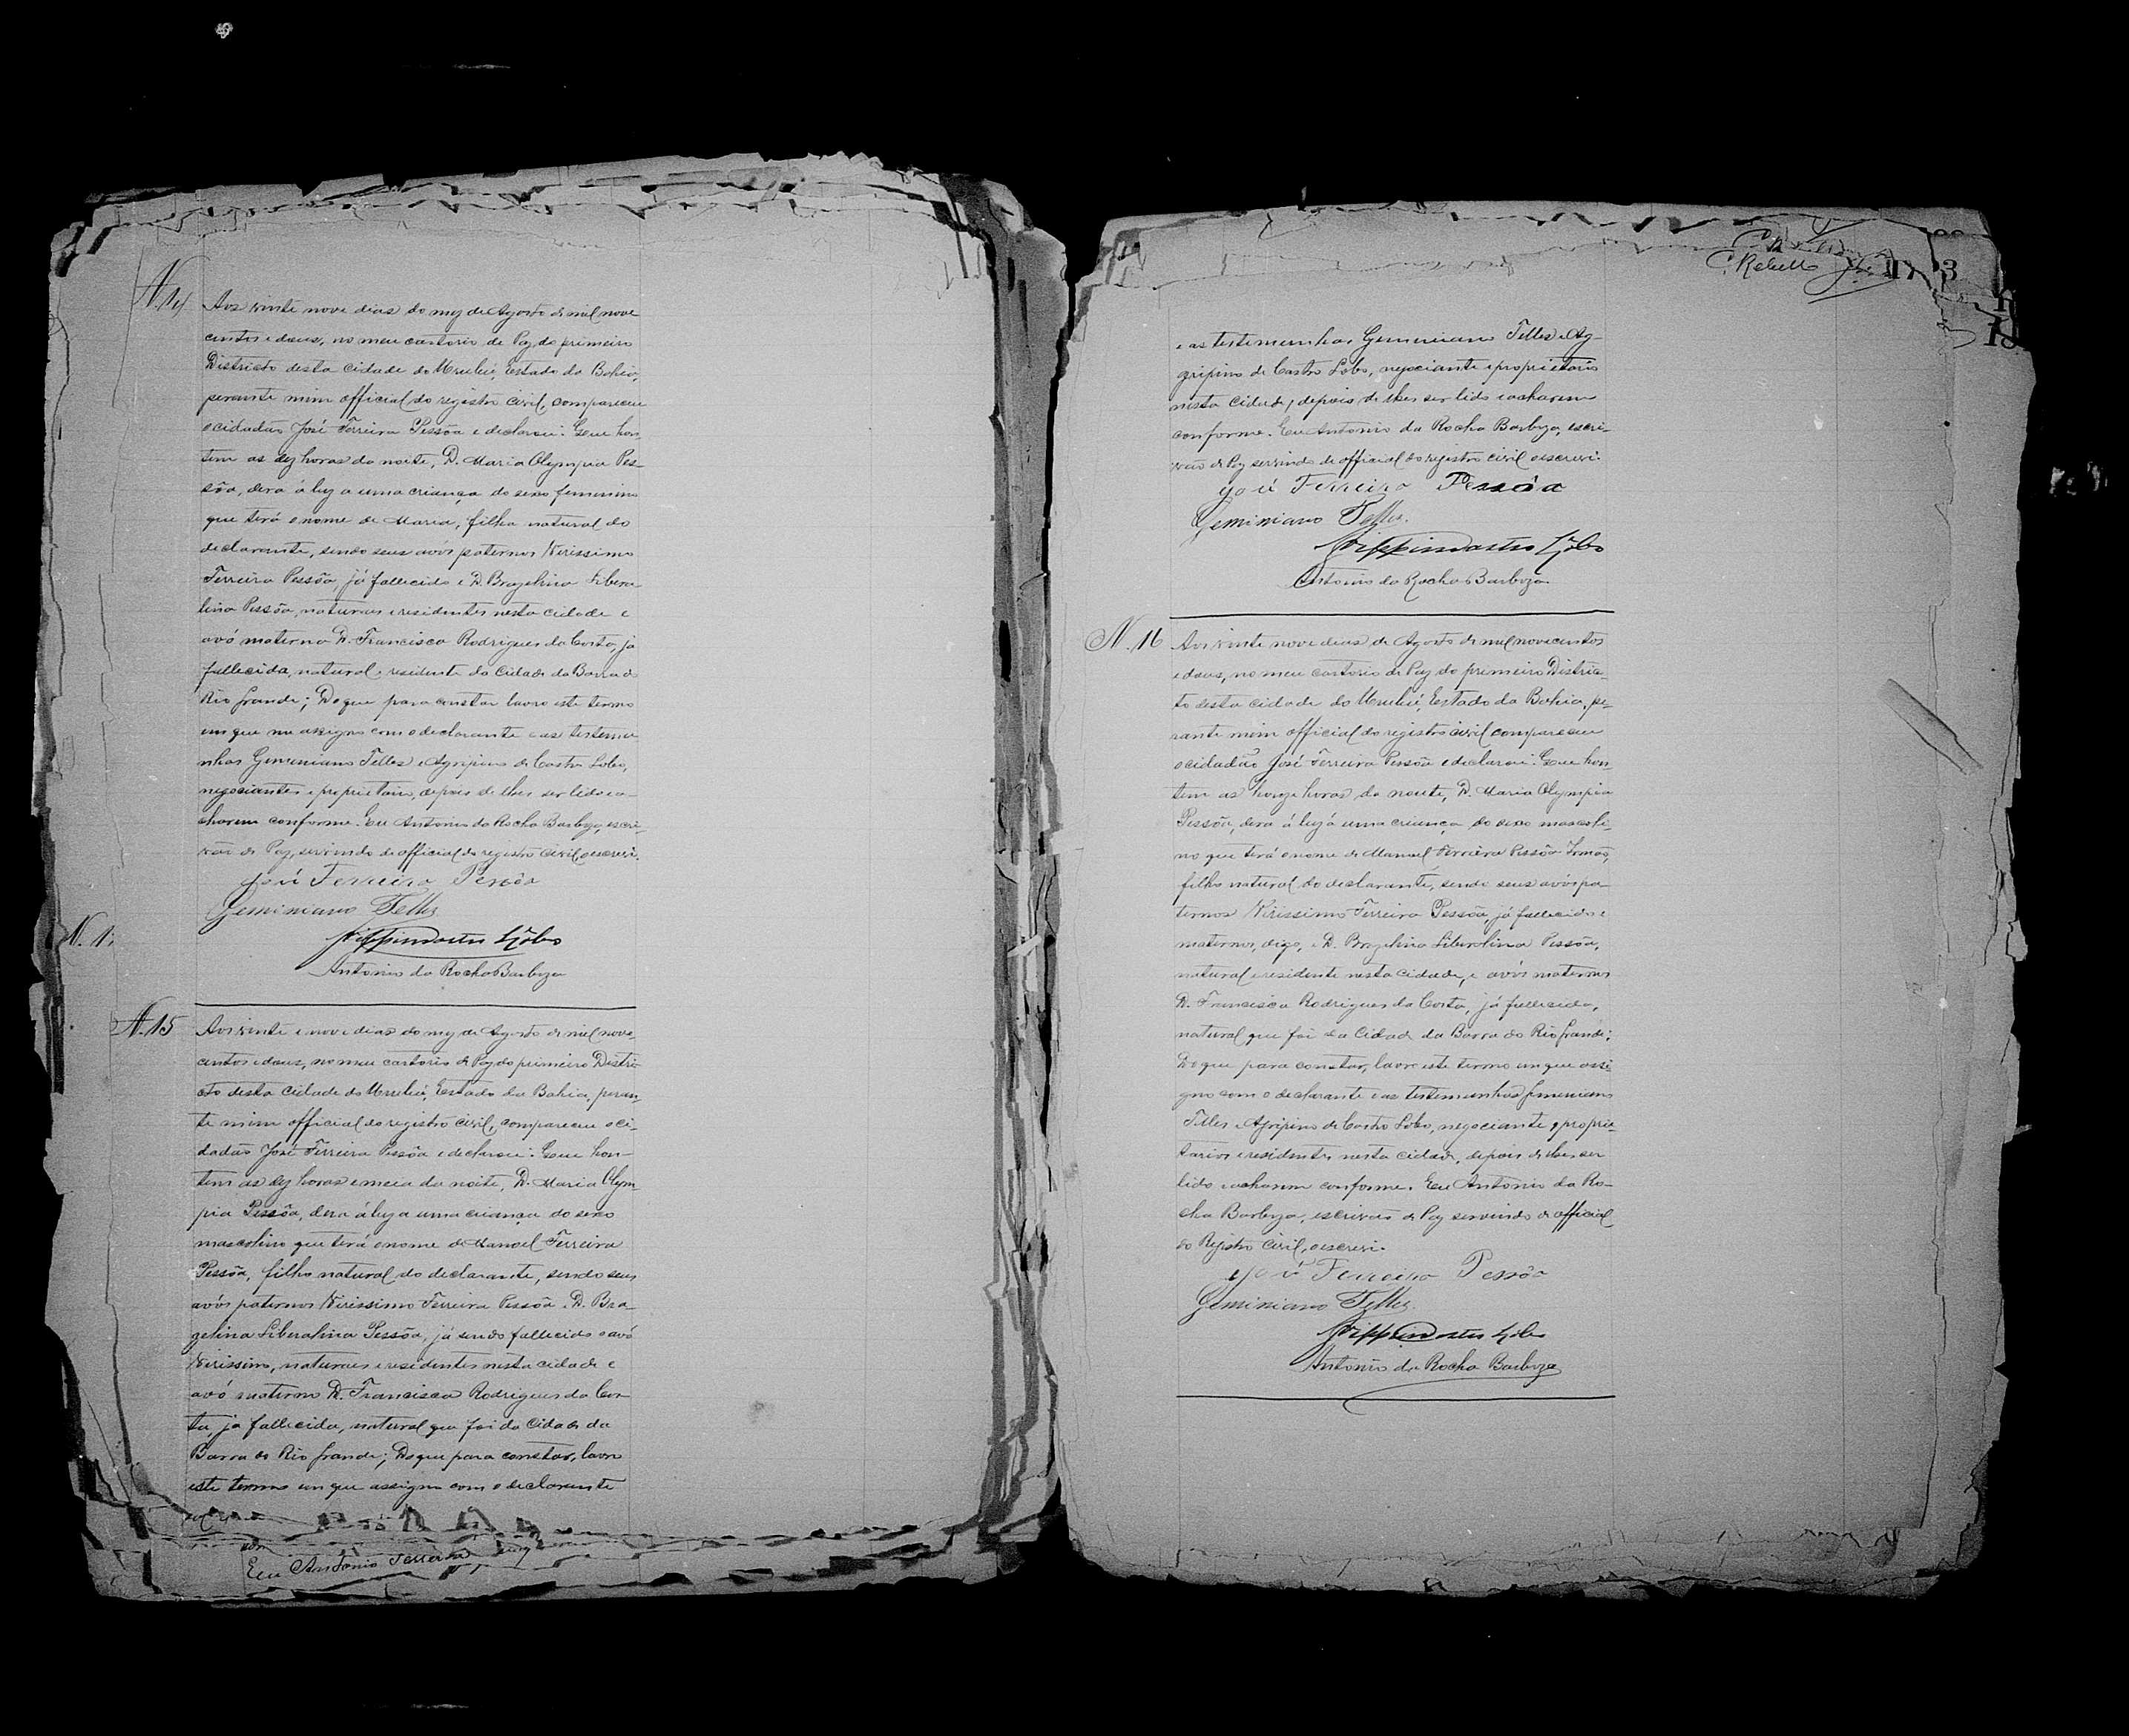 N. 14
Aos vinte nove dias do mez de Agosto de mil nove
centos e dous, no meu cartorio de Paz do primeiro
Districto desta cidade do Urubú, Estado da Bahia,
perante mim official do registro civil, compareceu
o cidadão José Ferreira Pessôa e declarou: Que hon
tem as dez horas da noite, D. Maria Olympia Pes-
sôa, dera á luz a uma criança do sexo feminino
que terá o nome de Maria, filha natural do
declarante, sendo seus avós paternos Virissimo
Ferreira Pessôa, já fallecido e D. Brazelina Libera
lina Pessôa, naturaes e residentes nesta cidade e
avó materna D. Francisca Rodrigues da Costa, já
fallecida, natural e residente da Cidade da Barra do
Rio Grande; Do que para constar lavro este termo
em que me assigno com o declarante e as testemu
nhas Geminiano Telles e Agripino de Castro Lobo,
negociantes e proprietario, depois de lhes ser lido e a-
charem conforme. Eu Antonio da Rocha Barboza, escri-
vão de Paz, servindo de official do registro civil o escrevi.
José Ferreira Pessôa
Geminiano Telles
Lobo
Antonio da Rocha Barboza
N. 1
N. 15
Aos vinte e nove dias do mez de Agosto de mil nove-
centos e dous, no meu cartorio de Paz do primeiro Distri
cto desta Cidade do Urubú, Estado da Bahia, peran-
te mim official do registro civil, compareceu o ci-
dadão José Ferreira Pessôa e declarou: Que hon-
tem as dez horas e meia da noite, D. Maria Olym-
pia Pessôa, dera á luz a uma criança do sexo
mascolino que terá o nome de Manoel Ferreira
Pessôa, filho natural do declarante, sendo seus
avós paternos Virissimo Ferreira Pessôa e D. Bra-
zelina Liberalina Pessôa, já sendo fallecido o avó
Virissimo, naturaes e residentes nesta cidade e
avó materno D. Francisca Rodrigues da Cos-
ta, já fallecida, natural que foi da Cidade da
Barra do Rio Grande; Do que para constar, lavro
este termo em que assigno com o declarante
Eu Antonio Ferreira
C. Rebello
3
e as testemunhas Geminiano Telles e Ag-
gripino de Castro Lobo, negociante e proprietario
nesta Cidade, depois de lhes ser lido e acharem
conforme. Eu Antonio da Rocha Barboza, escri-
vão de Paz servindo de official do registro civil o escrevi.
José Ferreira Pessôa
Geminiano Telles.
Lobo
Antonio da Rocha Barboza
N. 16
Aos vinte nove dias de Agosto de mil novecentos
e dous, no meu cartorio de Paz do primeiro Distric-
to desta cidade do Urubú, Estado da Bahia, pe-
rante mim official do registro civil compareceu
o cidadão José Ferreira Pessôa e declarou: Que hon-
tem as honze horas da noute, D. Maria Olympia
Pessôa, dera á luz á uma criança do sexo mascoli-
no que terá o nome de Manoel Ferreira Pessôa Irmão,
filho natural do declarante, sendo seus avós pa-
ternos Virissimo Ferreira Pessôa, já fallecido e
maternos, digo, e D. Brazelina Liberalina Pessôa,
natural e residente nesta cidade, e avós maternos
D. Francisca Rodrigues da Costa, já fallecida,
natural que foi da Cidade da Barra do Rio Grande;
Do que para constar, lavro este termo em que assi
gno com o declarante e as testemunhas Geminiano
Telles e Agripino de Castro Lobo, negociante e proprie-
tarios e residentes nesta cidade, depois de lhes ser
lido e acharem conforme. Eu Antonio da Ro-
cha Barboza, escrivão de Paz servindo de official
do Registro Civil, o escrevi.
José Ferreira Pessôa
Geminiano Telles.
Lobo
Antonio da Rocha Barboza